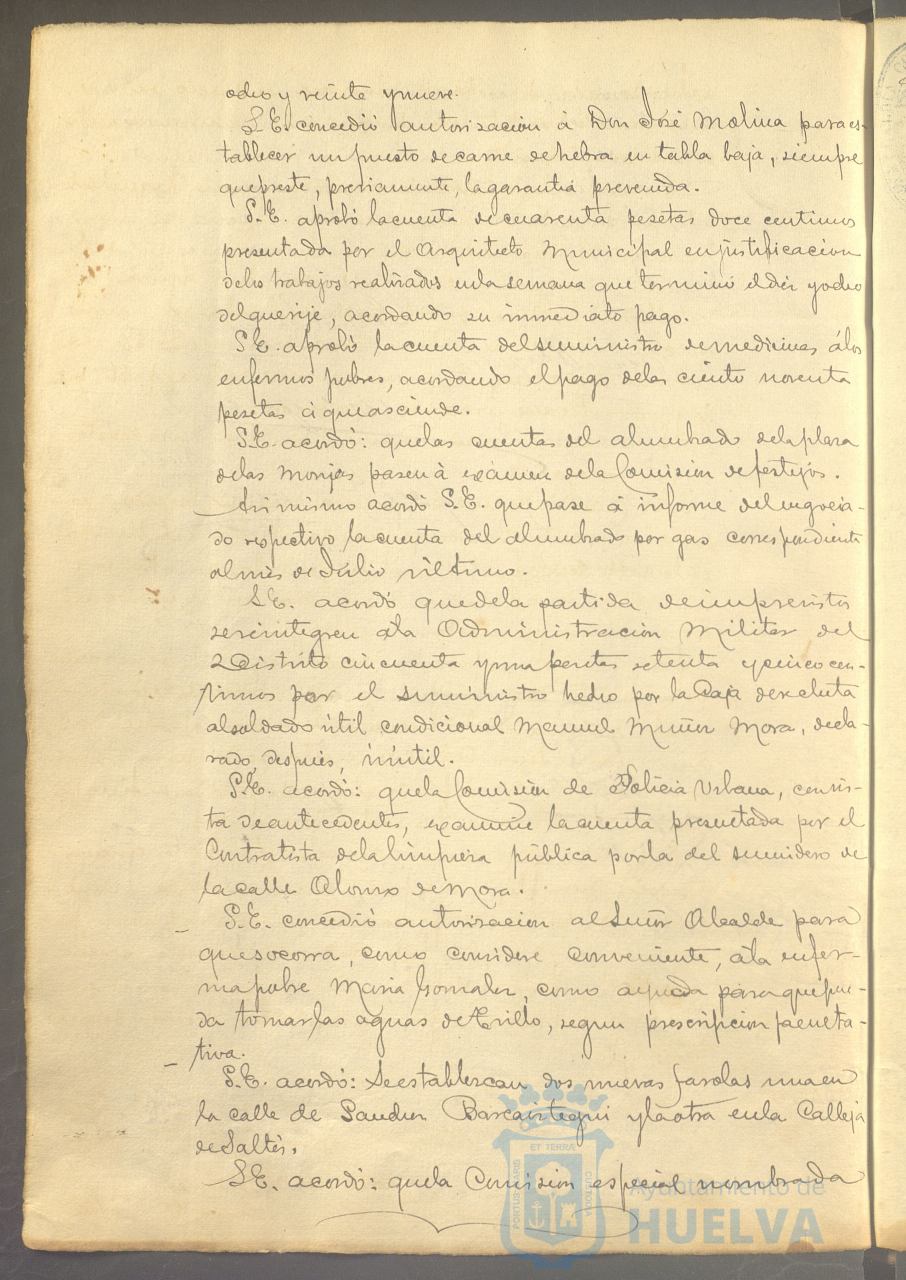 ocho y veinte y nueve.
S.E. concedió autorización á Don José Molina para es-
tablecer un puesto de carne de hebra en tabla baja, siempre
que preste, previamente, la garantia prevenida.
S.E. aprobó la cuenta de cuarenta pesetas doce centimos
presentada por el Arquitecto Municipal en justificacion
de los trabajos realizados en la semana que terminó el diez y ocho
del que rije, acordando su inmediato pago.
S.E. aprobó la cuenta del suministro de medicinas á los
enfermos pobres, acordando el pago de las ciento noventa
pesetas á que asciende.
S.E. acordó: que las cuentas del alumbrado de la plaza
de las Monjas pasen á exámen de la Comision de festejos.
Asi mismo acordó S.E. que pase á informe del negocia-
do respectivo la cuenta del alumbrado por gas correspondiente
al mes de Julio último.
S.E. acordó que de la partida de imprevistos
se reintegren á la Administracion Militar del
2 Distrito cincuenta y una pesetas setenta y cinco cen-
timos por el suministro hecho por la Caja de recluta
al soldado útil condicional Manuel Muñoz Mora, decla-
rado, después, inútil.
S.E. acordó: que la Comisión de Policia Urbana, con vis-
ta de antecedentes, examine la cuenta presentada por el
Contratista de la limpieza pública por la del sumidero de
la calle Alonso de Mora.
S.E. concedió autorizacion al Señor Alcalde para
que socorra, como considere conveniente, á la enfer-
ma pobre Maria Gonzalez, como ayuda para que pue-
da tomar las aguas de Trillo, segun prescripcion faculta-
tiva.
S.E. acordó: Se establezcan dos nuevas farolas una en
la calle de Sanchez Barcaiztegui y la otra en la Calleja
de Saltés.
S.E. acordó: que la Comision especial nombrada
ET TERRÆ
PORTUS MARIS
CUSTODIA
Ayuntamiento de
HUELVA